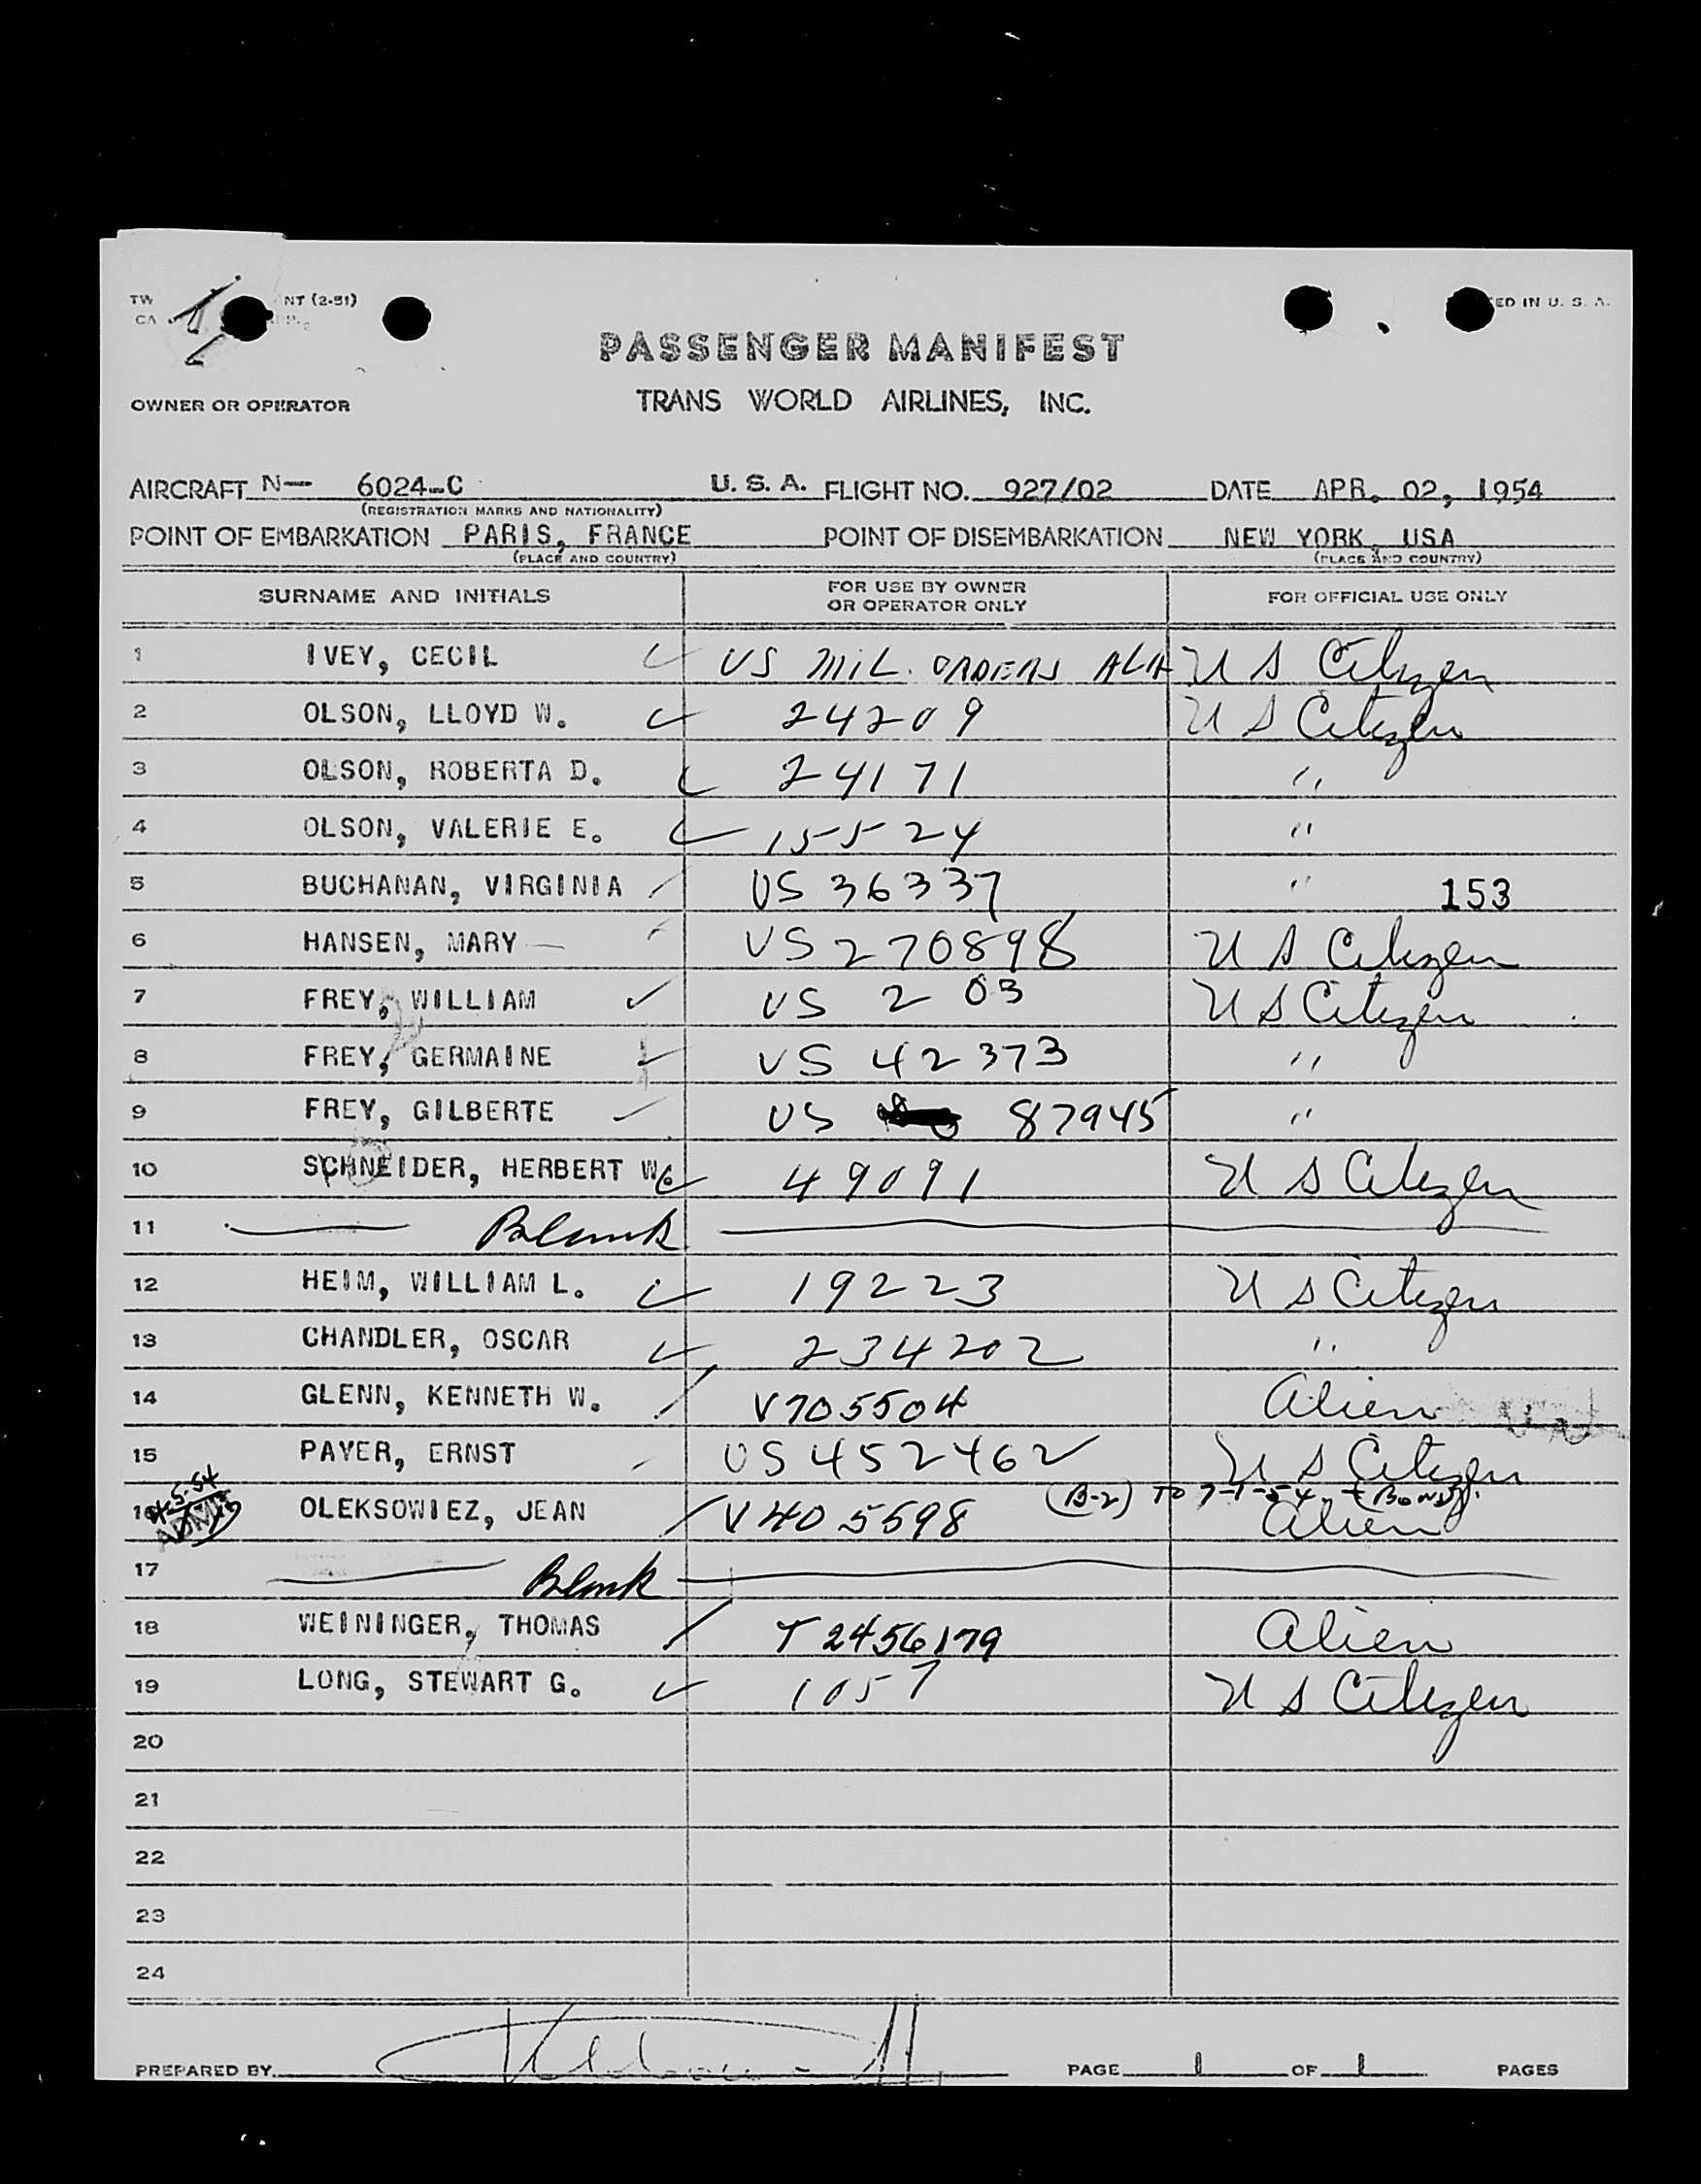 TW NT (2-51)
CA
ED IN U. S. A.
PASSENGER MANIFEST
OWNER OR OPERATOR TRANS WORLD AIRLINES, INC.
AIRCRAFT N— 6024-C U. S. A. FLIGHT NO. 927/02 DATE APR. 02, 1954
(REGISTRATION MARKS AND NATIONALITY)
POINT OF EMBARKATION PARIS, FRANCE POINT OF DISEMBARKATION NEW YORK, USA
(PLACE AND COUNTRY) (PLACE AND COUNTRY)
SURNAME AND INITIALS FOR USE BY OWNER OR OPERATOR ONLY FOR OFFICIAL USE ONLY
1 IVEY, CECIL US MIL. ORDERS U S Citizen
2 OLSON, LLOYD W. 24209 U S Citizen
3 OLSON, ROBERTA D. 24171 "
4 OLSON, VALERIE E. 15524 "
5 BUCHANAN, VIRGINIA US 36337 " 153
6 HANSEN, MARY US 270898 U S Citizen
7 FREY, WILLIAM US 2 03 U S Citizen
8 FREY, GERMAINE US 42373 "
9 FREY, GILBERTE US 87945 "
10 SCHNEIDER, HERBERT W. 49091 U S Citizen
11 Blank
12 HEIM, WILLIAM L. 19223 U S Citizen
13 CHANDLER, OSCAR 234202 "
14 GLENN, KENNETH W. V705504 Alien
15 PAYER, ERNST US 452462 U S Citizen
4-5-54 (B-2) TO 7-1-54 + (BOND).
16 OLEKSOWIEZ, JEAN V405598 Alien
ADMI
17 Blank
18 WEININGER, THOMAS T2456179 Alien
19 LONG, STEWART G. 1057 U S Citizen
20
21
22
23
24
PREPARED BY PAGE 1 OF 1 PAGES